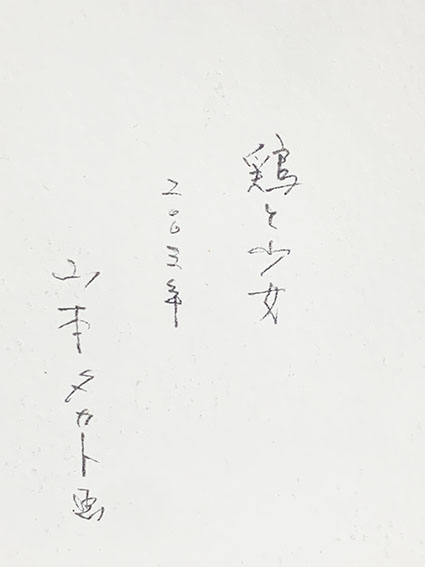 鶏と少女
二〇〇五年
山本タカト画